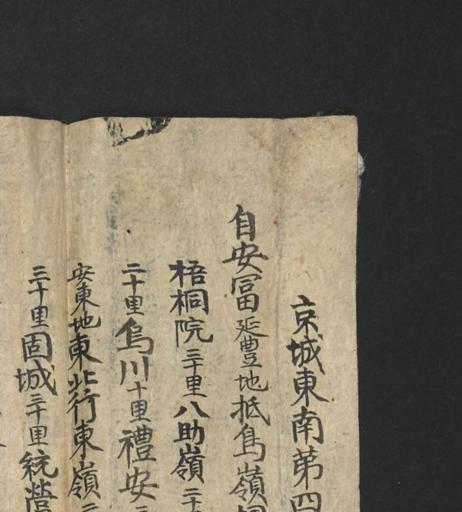 京城東南第四
自安富延豊地抵鳥嶺
梧桐院三十里八助嶺
二十里烏川十里禮安
安東地東北行東嶺
三十里固城三十里統營